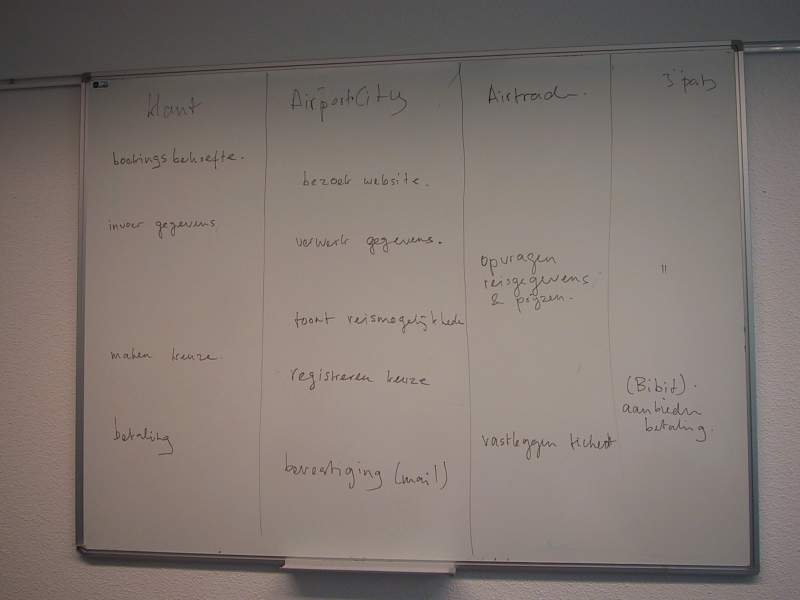 klant
AirportCity
Airtrade.
bookingsbehoefte.
bezoek website.
invoer gegevens
verwerk gegevens.
opvragen
reisgegevens
& prijzen.
"
toont reismogelijkhede
maken keuze.
registreren keuze
(Bibit).
aanbieden
betaling.
betaling
vastleggen ticket
bevestiging (mail)